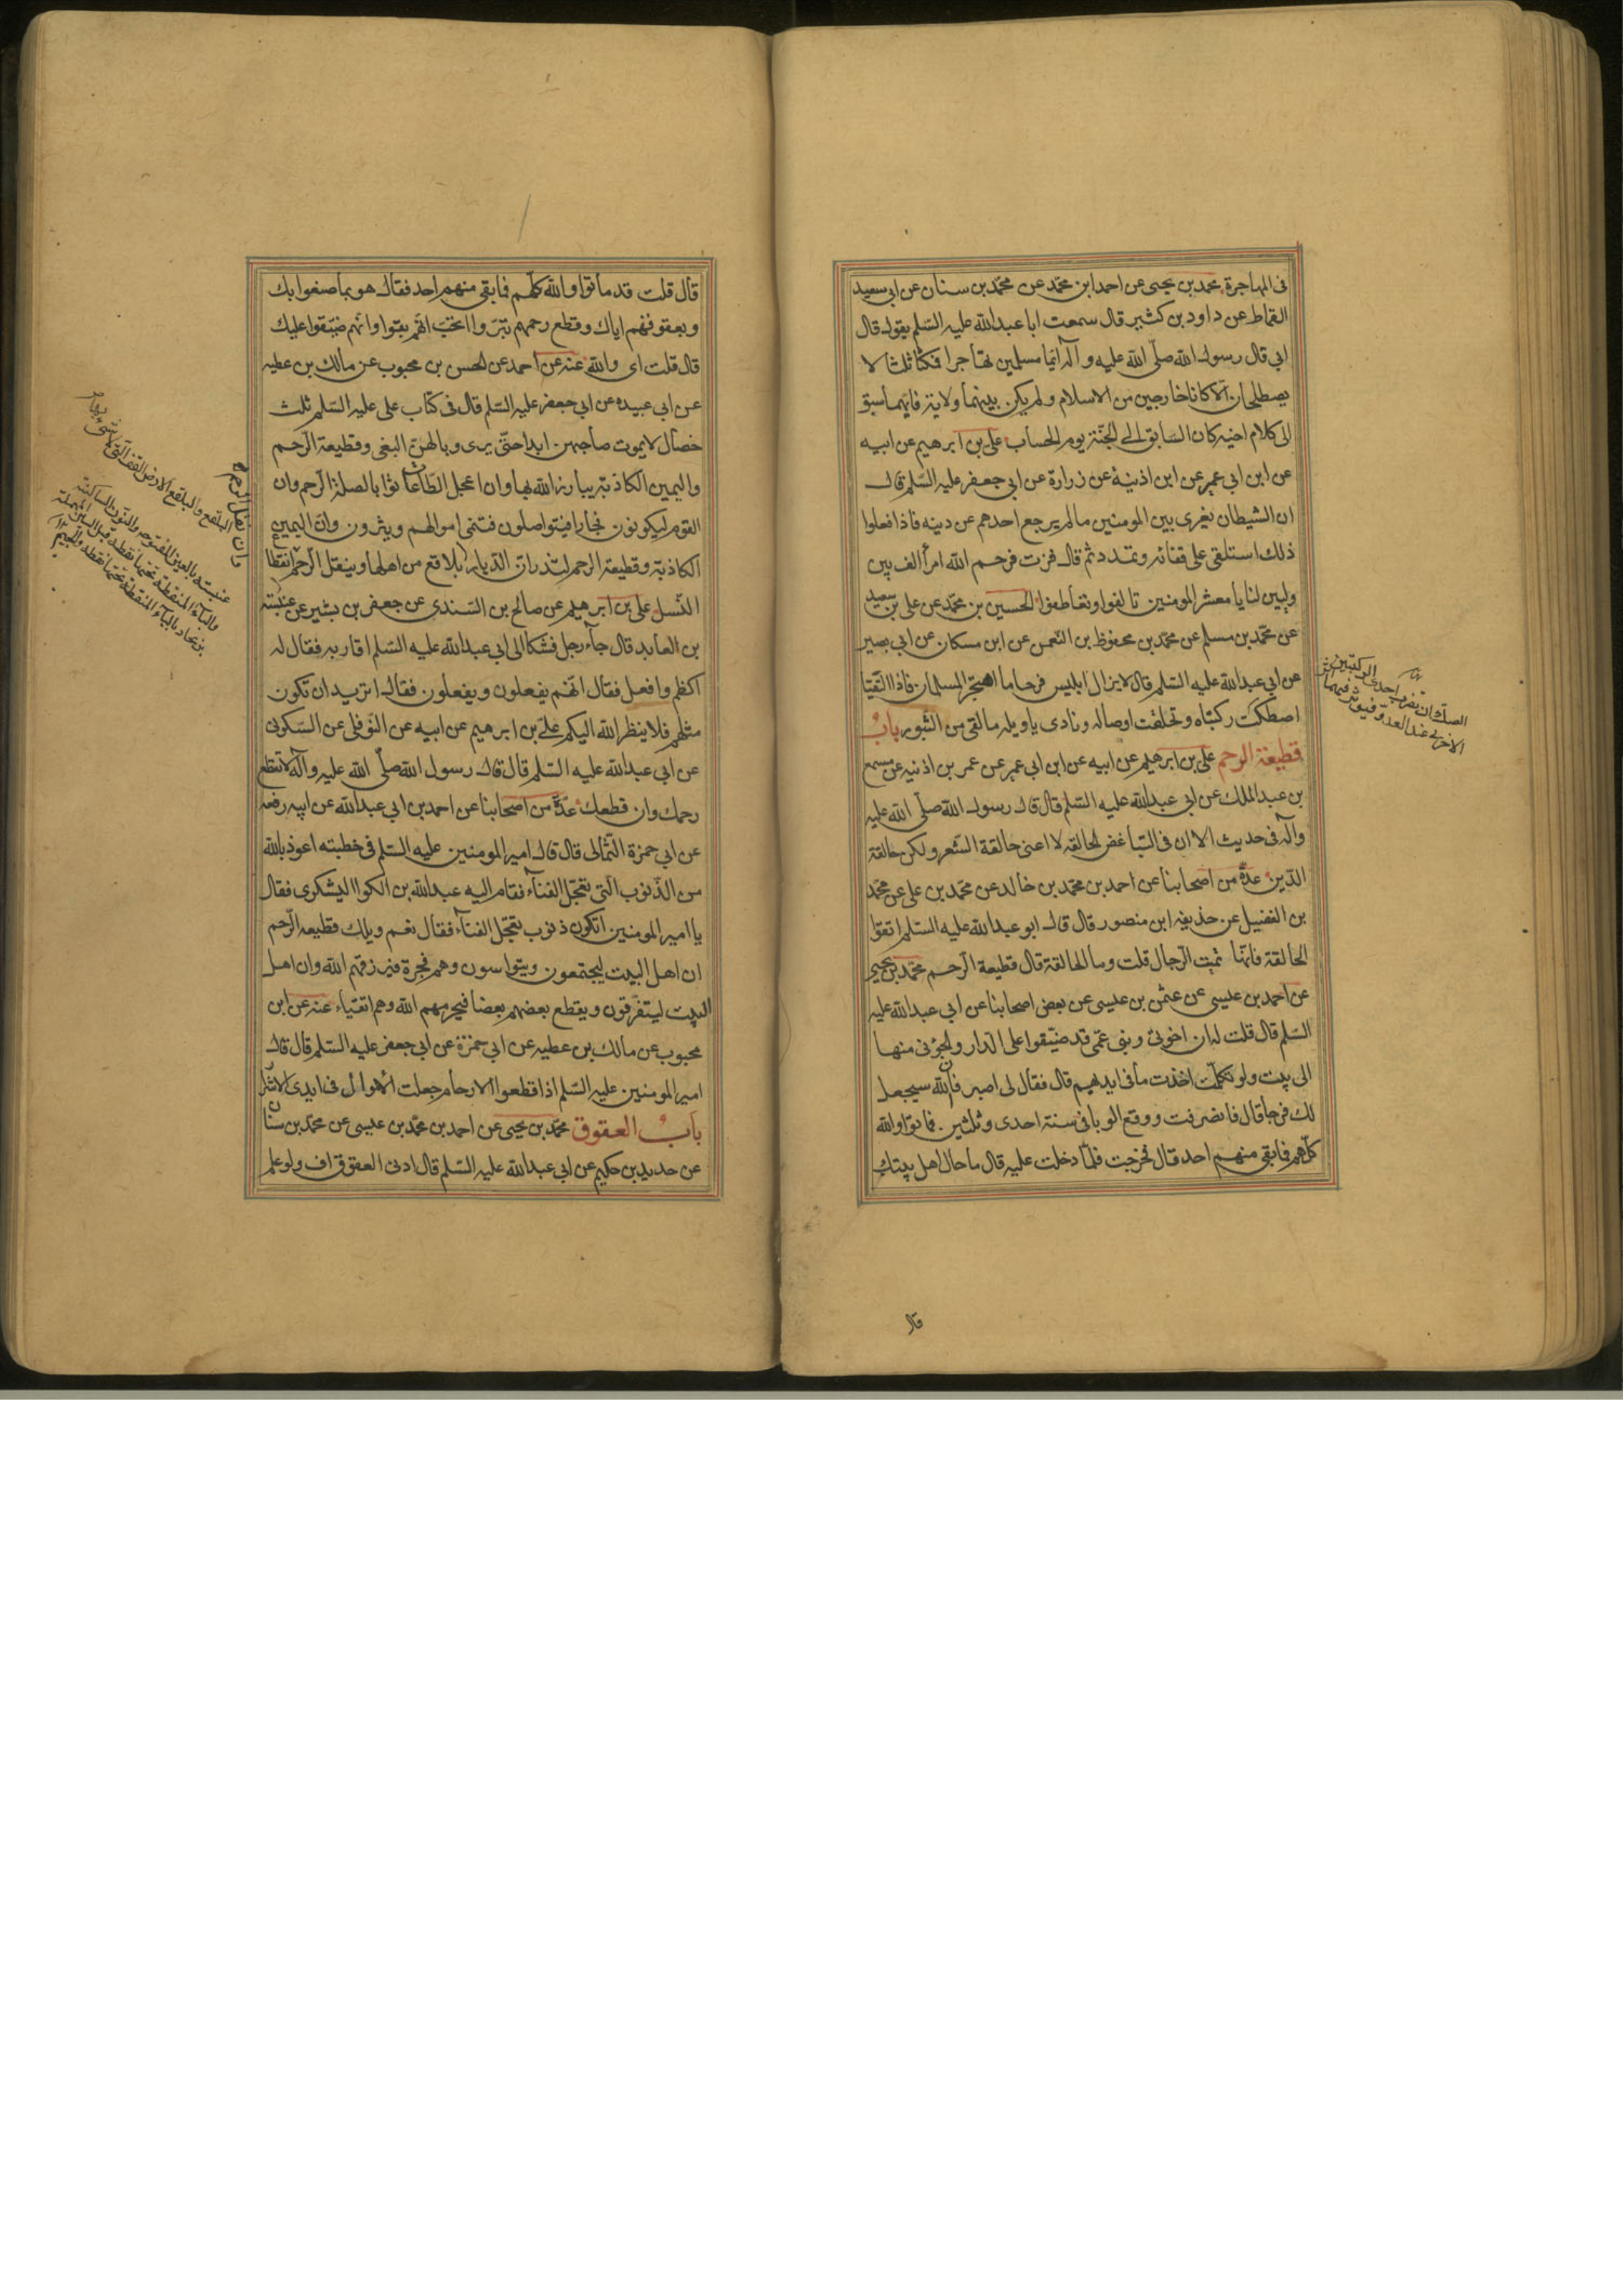 فى المهاجرة محمد بن يحيى عن احمد ابن محمّد عن محمّد بن سنان عن ابى سعيد
القماط عن داود بن كثير قال سمعت ابا عبد الله عليه السّلم يقول قال
ابى قال رسول الله صلّى الله عليه وآله ايما مسلمين تهاجرا فمكثا ثلثا لا
يصطلحان الا كانا خارجين من الاسلام ولم يكن بينهما ولاية فايهما سبق
الى كلام اخيه كان السّابق الى الجنّة يوم الحساب على بن ابرهيم عن ابيه
عن ابن ابى عمير عن ابن اذينة عن زرارة عن ابى جعفر عليه السّلم قال
ان الشيطان يغرى بين المومنين مالم يرجع احدهم عن دينه فاذا فعلوا
ذلك استلقى على قفائه وتمدد ثم قال فزت فرحم الله امرأ الف بين
وليين لنا يا معشر المومنين تالفوا وتعاطفوا الحسين بن محمّد عن على بن سعيد
عن محمّد بن مسلم عن محمّد بن محفوظ بن النّعمن عن ابن مسكان عن ابى بصير
عن ابى عبد الله عليه السّلم قال لا يزال ابليس فرحا ما اهتجر المسلمان فاذا التقيا
اصطكت ركبتاه وتخلّفت اوصاله ونادى يا ويله ما لقى من الثّبور باب
قطيعة الرحم على بن ابرهيم عن ابيه عن ابن ابى عمير عن عمر بن اذنيه عن مسمع
بن عبد الملك عن ابى عبد الله عليه السّلم قال قال رسول الله صلّى الله عليه
وآله فى حديث الا ان فى التّباغض الحالقه لا اعنى حالقة الشّعر ولكن حالقة
الدّين عدّة من اصحابنا عن احمد بن محمّد بن خالد عن محمّد بن على عن محمّد
بن الفضيل عن حذيفه ابن منصور قال قال ابو عبد الله عليه السّلم اتقوا
الحالقة فانّها تميت الرّجال قلت وما الحالقة قال قطيعة الرّحم محمّد بن يحيى
عن احمد بن عليسى عن عثمن بن عيسى عن بعض اصحابنا عن ابى عبد الله عليه
السّلم قال قلت له ان اخوتى وبنى عمّى قد ضيّقوا على الدّار والجؤنى منها
الى بيت ولو تكلّمت اخذت ما فى ايديهم قال فقال لى اصبر فان الله سيجعل
لك فرجا قال فانصرفت ووقع الوبا فى سنة احدى وثلثين فماتوا والله
كلّهم فما بقى منهم احد قال فخرجت فلمّا دخلت عليه قال ما حال اهل بيتك
الصك ان تضرب احدى الركبتين
الاخرى عند العدو فيوثر فيهما
قال
قال قلت قد ماتوا والله كلّهم فما بقى منهم احد فقال هو بما صنعوا بك
وبعقوقهم اياك وقطع رحمهم بتروا اتحب انهم بقوا وانهم ضيّقوا عليك
قال قلت اى والله عنه عن احمد عن الحسن بن محبوب عن مالك بن عطيه
عن ابى عبيده عن ابى جعفر عليه السّلم قال فى كتاب على عليه السّلم ثلث
خصال لا يموت صاحبهن ابدا حتّى يرى وبالهنّ البغى وقطيعة الرّحم
واليمين الكاذبة يبارز الله بها وان اعجل الطّاعات ثوابا لصلة الرّحم وان
القوم ليكونون فجارا فيتواصلون فتنمى اموالهم ويثرون وانّ اليمين
الكاذبة وقطيعة الرحم لتذران الدّيار بلاقع من اهلها وينقل الرّحم انقطاع
النّسل على بن ابرهيم عن صالح بن السّندى عن جعفر بن بشير عن عنبسة
بن العابد قال جاء رجل فشكا الى ابى عبد الله عليه السّلم اقاربه فقال له
اكظم وافعل فقال انّهم يفعلون ويفعلون فقال اتريد ان تكون
مثلهم فلا ينظر الله اليكم على بن ابرهيم عن ابيه عن النّوفلى عن السّكونى
عن ابى عبد الله عليه السّلم قال قال رسول الله صلّى الله عليه وآله لا تقطع
رحمك وان قطعك عدّة من اصحابنا عن احمد بن ابى عبد الله عن ابيه رفعه
عن ابى حمزة الثّمالى قال قال امير المومنين عليه السّلم فى خطبته اعوذ بالله
من الذّنوب الّتى تعجّل الفنآء فقام اليه عبد الله بن الكوا اليشكرى فقال
يا امير المومنين اتكون ذنوب تعجّل الفنآء فقال نعم ويلك قطيعه الرّحم
ان اهل البيت ليجتمعون ويتواسون وهم فجرة فيرزقهم الله وان اهل
البيت ليتفرّقون ويقطع بعضهم بعضا فيحرمهم الله وهم اتقياء عنه عن ابن
محبوب عن مالك بن عطيه عن ابى حمزة عن ابى جعفر عليه السّلم قال قال
امير المومنين عليه السّلم اذا قطعوا الارحام جعلت الاموال فى ايدى الاشرار
باب العقوق محمّد بن يحيى عن احمد بن محمّد بن عيسى عن محمّد بن سنان
عن حديد بن حكيم عن ابى عبد الله عليه السّلم قال ادنى العقوق اف ولو علم
وان نقل الرحم
البلقع والبلقع الارض القفر التى لا شئ بها
عنبسة بالعين المفتوحه والنّون الساكنة
والبآء المنقطة تحتها نقطه قبل السين المهملة
بن عباد بالبآء المنقطة تحتها نقطه والجيم